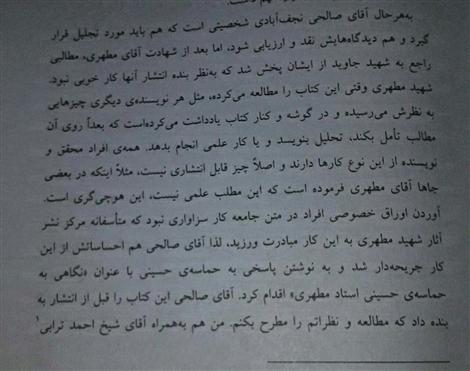 به‌هرحال آقای صالحی نجف‌آبادی شخصیتی است که هم باید مورد تجلیل قرار
گیرد و هم دیدگاه‌هایش نقد و ارزیابی شود، اما بعد از شهادت آقای مطهری، مطالبی
راجع به شهید جاوید از ایشان پخش شد که به‌نظر بنده انتشار آنها کار خوبی نبود.
شهید مطهری وقتی این کتاب را مطالعه می‌کرده، مثل هر نویسنده‌ی دیگری چیزهایی
به نظرش می‌رسیده و در گوشه و کنار کتاب یادداشت می‌کرده‌است که بعداً روی آن
مطالب تأمل بکند، تحلیل بنویسد و یا کار علمی انجام بدهد. همه‌ی افراد محقق و
نویسنده از این نوع کارها دارند و اصلاً چیز قابل انتشاری نیست، مثلاً اینکه در بعضی
جاها آقای مطهری فرموده است که این مطلب علمی نیست، این هوچی‌گری است.
آوردن اوراق خصوصی افراد در متن جامعه کار سزاواری نبود که متأسفانه مرکز نشر
آثار شهید مطهری به این کار مبادرت ورزید، لذا آقای صالحی هم احساساتش از این
کار جریحه‌دار شد و به نوشتن پاسخی به حماسه‌ی حسینی با عنوان «نگاهی به
حماسه‌ی حسینی استاد مطهری» اقدام کرد. آقای صالحی این کتاب را قبل از انتشار به
بنده داد که مطالعه و نظراتم را مطرح بکنم. من هم به‌همراه آقای شیخ احمد ترابی۱